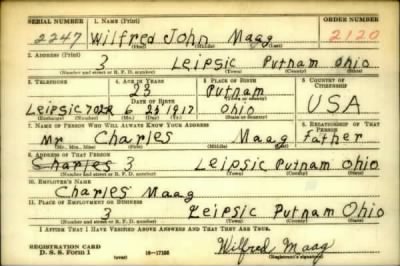 SERIAL NUMBER 1. NAME (Print) ORDER NUMBER
2247 Wilfred John Maag 2120
(First) (Middle) (Last)
2. ADDRESS (Print)
3 Leipsic Putnam Ohio
(Number and street or R. F. D. number) (Town) (County) (State)
3. TELEPHONE 4. AGE IN YEARS 5. PLACE OF BIRTH 6. COUNTRY OF CITIZENSHIP
23 Putnam
DATE OF BIRTH (Town or county)
Leipsic 6 23 1917 Ohio USA
(Exchange) (Number) (Mo.) (Day) (Yr.) (State or country)
7. NAME OF PERSON WHO WILL ALWAYS KNOW YOUR ADDRESS 8. RELATIONSHIP OF THAT PERSON
Mr Charles Maag Father
(Mr., Mrs., Miss) (First) (Middle) (Last)
9. ADDRESS OF THAT PERSON
Charles 3 Leipsic Putnam Ohio
(Number and street or R. F. D. number) (Town) (County) (State)
10. EMPLOYER'S NAME
Charles Maag
11. PLACE OF EMPLOYMENT OR BUSINESS
3 Leipsic Putnam Ohio
(Number and street or R. F. D. number) (Town) (County) (State)
I AFFIRM THAT I HAVE VERIFIED ABOVE ANSWERS AND THAT THEY ARE TRUE.
REGISTRATION CARD
D. S. S. Form 1 (over) 16-17105 Wilfred Maag
(Registrant's signature)